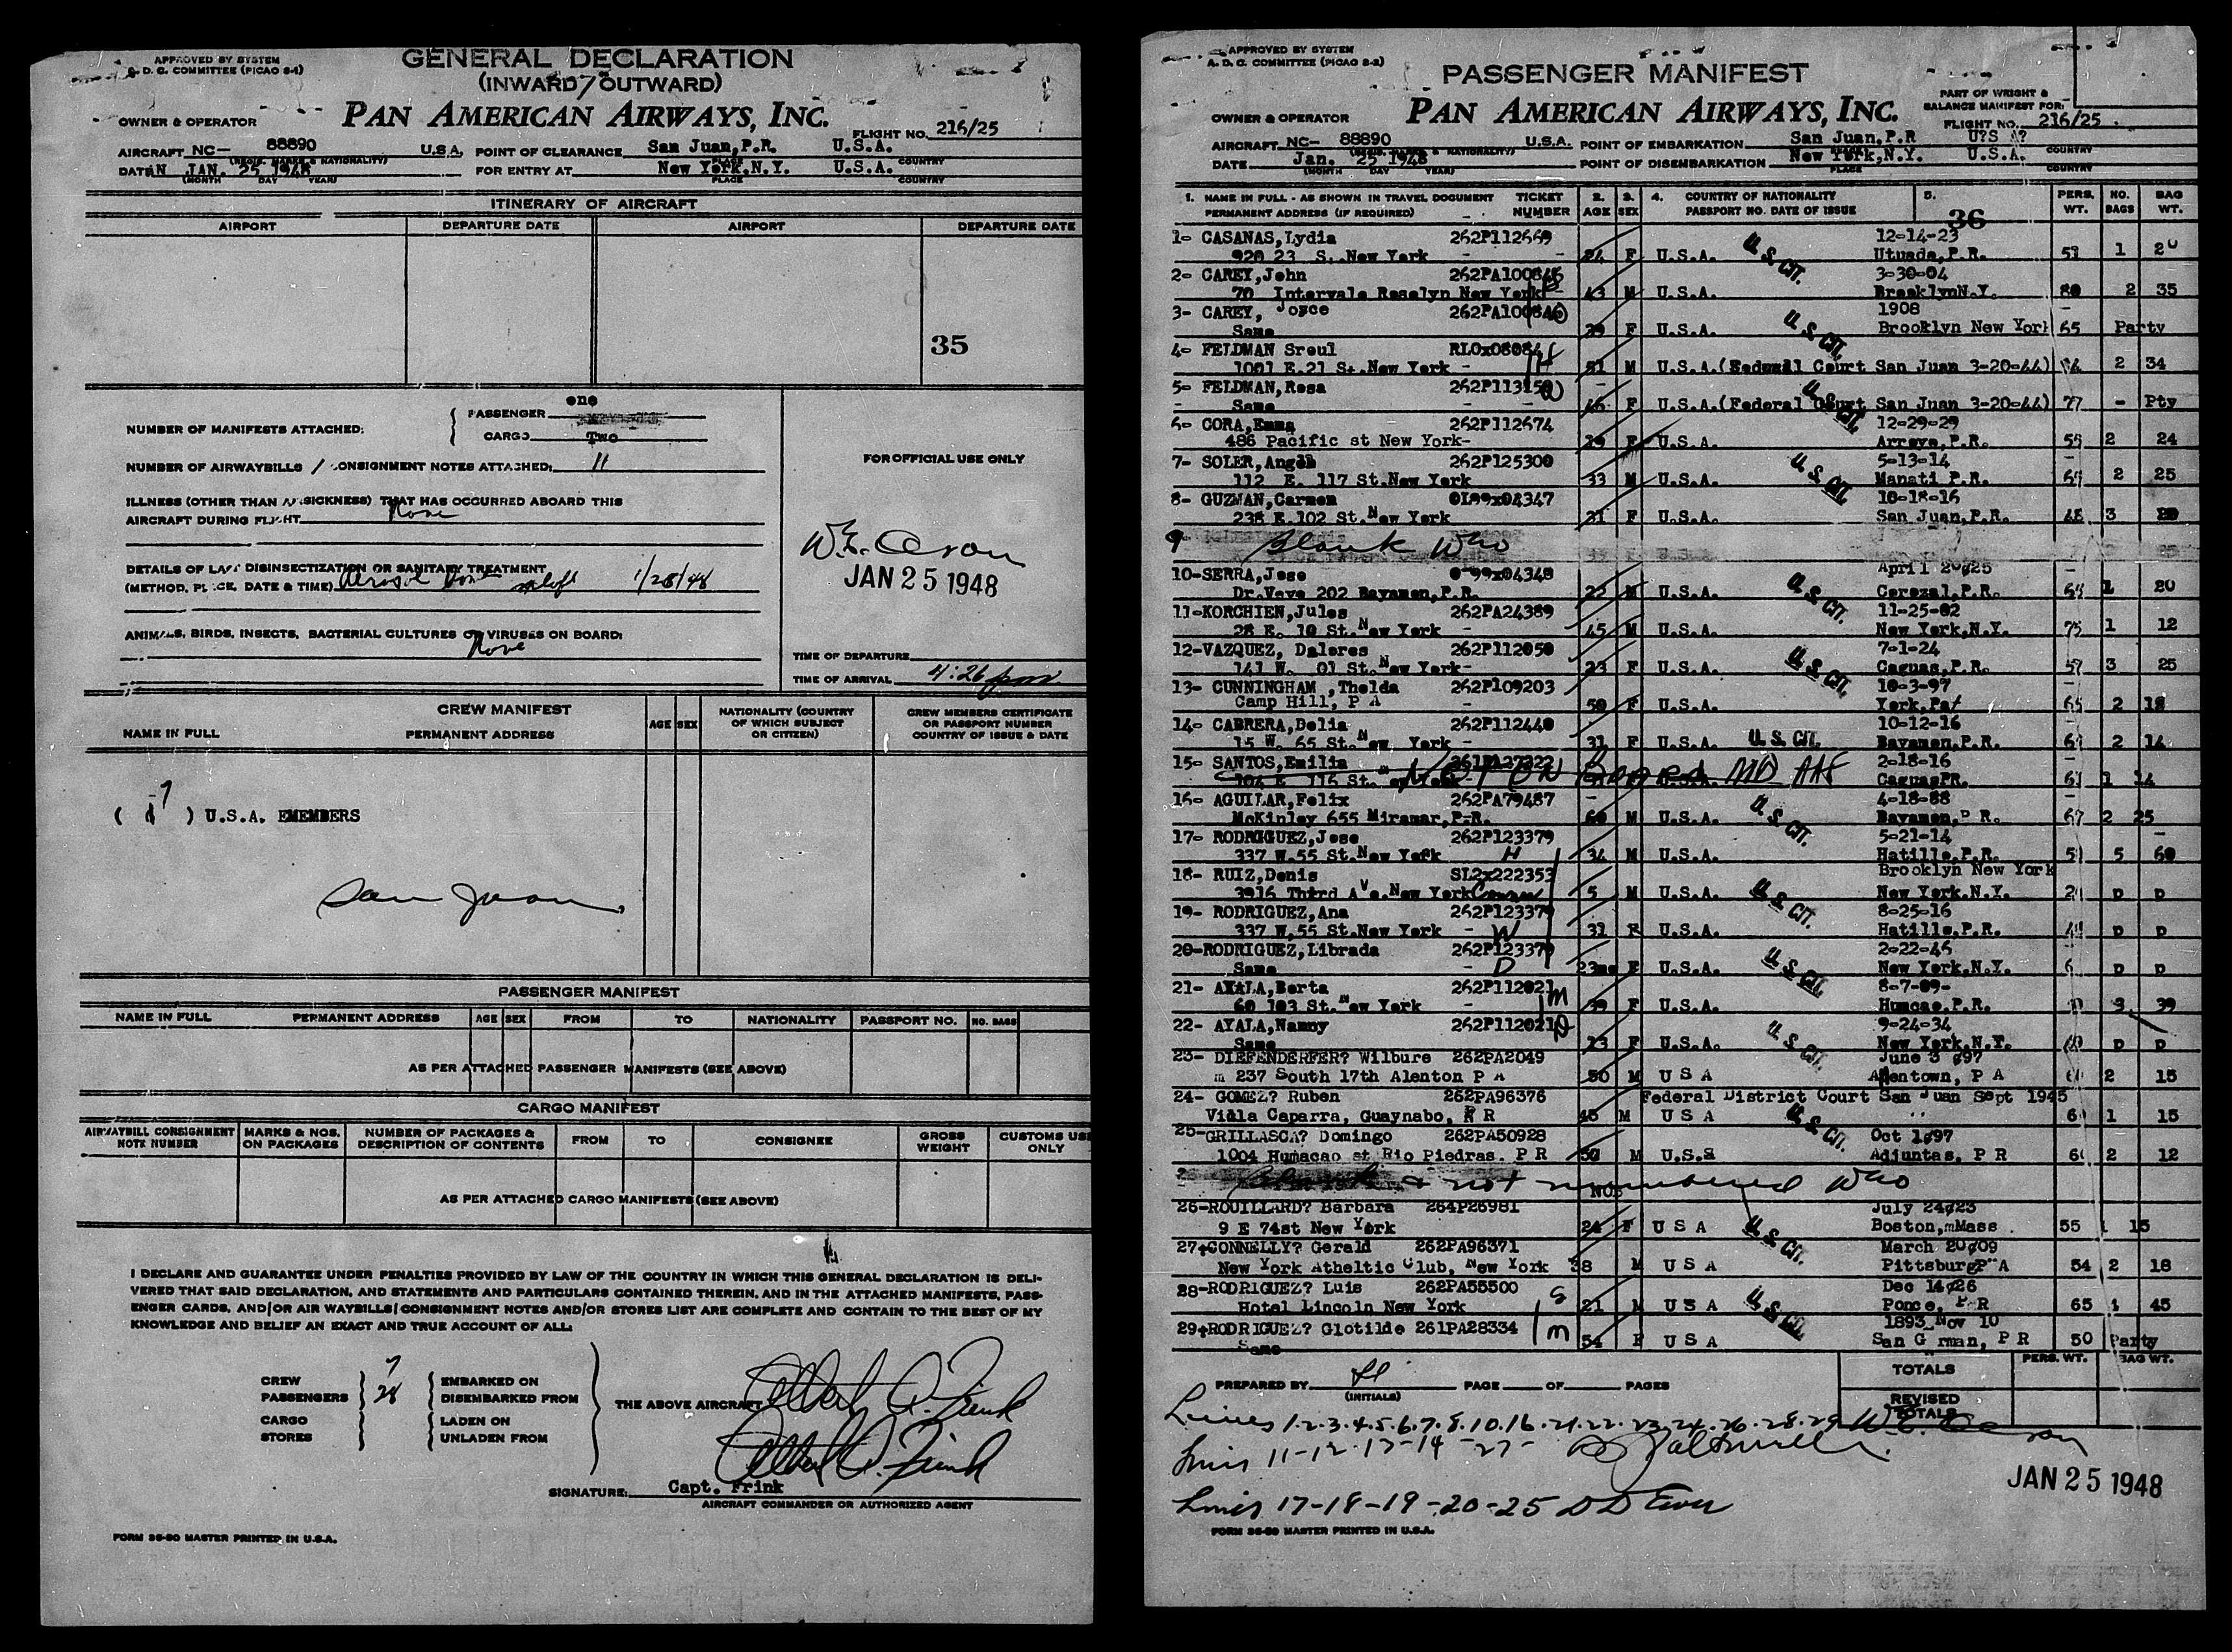 APPROVED BY SYSTEM
A. D. C. COMMITTEE (PICAO S-1)
GENERAL DECLARATION
(INWARD/OUTWARD)
PAN AMERICAN AIRWAYS, INC.
OWNER & OPERATOR
FLIGHT NO. 216/25
AIRCRAFT NC- 88890 U.S.A. POINT OF CLEARANCE San Juan,P.R. U.S.A.
(REGIS. MARKS & NATIONALITY) PLACE COUNTRY
DATE JAN. 25 1948 FOR ENTRY AT New York,N.Y. U.S.A.
(MONTH DAY YEAR) PLACE COUNTRY
ITINERARY OF AIRCRAFT
AIRPORT DEPARTURE DATE AIRPORT DEPARTURE DATE
35
NUMBER OF MANIFESTS ATTACHED: PASSENGER one
CARGO Two
NUMBER OF AIRWAYBILLS / CONSIGNMENT NOTES ATTACHED: 11
FOR OFFICIAL USE ONLY
ILLNESS (OTHER THAN AIRSICKNESS) THAT HAS OCCURRED ABOARD THIS
AIRCRAFT DURING FLIGHT None
JAN 25 1948
DETAILS OF LAST DISINSECTIZATION OR SANITARY TREATMENT
(METHOD, PLACE, DATE & TIME) Aerosol 1/25/48
ANIMALS, BIRDS, INSECTS, BACTERIAL CULTURES OR VIRUSES ON BOARD:
None
TIME OF DEPARTURE
TIME OF ARRIVAL 4:26 pm
CREW MANIFEST
NAME IN FULL PERMANENT ADDRESS AGE SEX NATIONALITY (COUNTRY OF WHICH SUBJECT OR CITIZEN) CREW MEMBERS CERTIFICATE OR PASSPORT NUMBER COUNTRY OF ISSUE & DATE
( 7 ) U.S.A. EMEMBERS
San Juan
PASSENGER MANIFEST
NAME IN FULL PERMANENT ADDRESS AGE SEX FROM TO NATIONALITY PASSPORT NO. NO. BAGS
AS PER ATTACHED PASSENGER MANIFESTS (SEE ABOVE)
CARGO MANIFEST
AIRWAYBILL CONSIGNMENT NOTE NUMBER MARKS & NOS. ON PACKAGES NUMBER OF PACKAGES & DESCRIPTION OF CONTENTS FROM TO CONSIGNEE GROSS WEIGHT CUSTOMS USE ONLY
AS PER ATTACHED CARGO MANIFESTS (SEE ABOVE)
I DECLARE AND GUARANTEE UNDER PENALTIES PROVIDED BY LAW OF THE COUNTRY IN WHICH THIS GENERAL DECLARATION IS DELI-
VERED THAT SAID DECLARATION, AND STATEMENTS AND PARTICULARS CONTAINED THEREIN, AND IN THE ATTACHED MANIFESTS, PASS-
ENGER CARDS, AND/OR AIR WAYBILLS/CONSIGNMENT NOTES AND/OR STORES LIST ARE COMPLETE AND CONTAIN TO THE BEST OF MY
KNOWLEDGE AND BELIEF AN EXACT AND TRUE ACCOUNT OF ALL:
CREW 7 EMBARKED ON
PASSENGERS 28 DISEMBARKED FROM THE ABOVE AIRCRAFT
CARGO LADEN ON
STORES UNLADEN FROM
SIGNATURE: Capt. Frink
AIRCRAFT COMMANDER OR AUTHORIZED AGENT
FORM 36-90 MASTER PRINTED IN U.S.A.
APPROVED BY SYSTEM
A. D. C. COMMITTEE (PICAO S-2)
PASSENGER MANIFEST
PAN AMERICAN AIRWAYS, INC.
PART OF WRIGHT & BALANCE MANIFEST FOR:
OWNER & OPERATOR
FLIGHT NO. 216/25
AIRCRAFT NC- 88890 U.S.A. POINT OF EMBARKATION San Juan,P.R U?S A?
(REGIS. MARKS & NATIONALITY) PLACE COUNTRY
DATE Jan. 25 1948 POINT OF DISEMBARKATION New York,N.Y. U.S.A.
(MONTH DAY YEAR) PLACE COUNTRY
1. NAME IN FULL - AS SHOWN IN TRAVEL DOCUMENT TICKET 2. 3. 4. COUNTRY OF NATIONALITY 5. PERS. NO. BAG
PERMANENT ADDRESS (IF REQUIRED) NUMBER AGE SEX PASSPORT NO. DATE OF ISSUE 36 WT. BAGS WT.
1- CASANAS,Lydia 262P112669 12-14-23
920 23 S. New York 24 F U.S.A. U. S. CIT. Utuado,P.R. 1
2- CAREY,John 262PA100845 3-30-04
70 Intervale Roselyn New York 43 M U.S.A. BrooklynN.Y. 80 2 35
3- CAREY, Joyce 262PA100846 1908
Same 39 F U.S.A. U. S. CIT. Brooklyn New York 65 Party
4- FELDMAN Sroul
1001 E.21 St.New York 51 M U.S.A.(Federal Court San Juan 3-20-44) 2 34
5- FELDMAN,Rosa
Same 46 F U.S.A.(Federal Court San Juan 3-20-44) 77 - Pty
6- CORA,Emma 262P112674 12-29-29
486 Pacific st New York- F U.S.A. Arroyo,P.R. 55 2 24
7- SOLER,Angel 262P125300 5-13-14
112 E. 117 St.New York 33 M U.S.A. U. S. CIT. Manati P.R. 2 25
8- GUZMAN,Carmen 0199x04347 10-18-16
238 E.102 St.New York 31 F U.S.A. San Juan,P.R. 48 3
9 Blank
10-SERRA,Jose April 20 25
Dr.Veve 202 Bayamon,P.R. 22 M U.S.A. U. S. CIT. Corozal,P.R. 1 20
11-KORCHIEN,Jules 262PA24389 11-25-02
28 E. 10 St.New York 45 M U.S.A. New York,N.Y. 75 1 12
12-VAZQUEZ, Dalores 262P112050 7-1-24
141 W. 01 St.New York- 23 F U.S.A. U. S. CIT. Caguas,P.R. 57 3 25
13- CUNNINGHAM ,Thelda 262P109203 10-3-97
Camp Hill, P A 50 F U.S.A. York,Pa 65 2 18
14- CABRERA,Delia 262P112440 10-12-16
15 W. 65 St.New York - 31 F U.S.A. U. S. CIT. Bayamon,P.R. 2 14
15- SANTOS,Emilia 261PA27222 2-18-16
104 E 116 St. NOT ON BOARD CaguasPR. 1 14
16- AGUILAR,Felix 262PA79487 4-18-88
McKinley 655 Miramar,P.R. M U.S.A. U. S. CIT. Bayamon,P R. 67 2 25
17- RODRIGUEZ,Jose 262P123379 5-21-14
337 W.55 St.New York H 34 M U.S.A. Hatillo,P.R. 5 60
18- RUIZ,Denis SL2x222353 Brooklyn New York
3916 Third Ave.New York 5 M U.S.A. U. S. CIT. New York.N.Y. p p
19- RODRIGUEZ,Ana 262P123379 8-25-16
337 W.55 St.New York - W 31 F U.S.A. Hatillo.P.R. p p
20-RODRIGUEZ,Librada 262P123379 2-22-46
Same - D 23mo F U.S.A. U. S. CIT. New York.N.Y. p p
21- AYALA,Berta 262P112021 8-7-09-
60 103 St.New York - m 39 F U.S.A. Humcao.P.R. 3 39
22- AYALA,Nancy 262P112021 9-24-34
Same 13 F U.S.A. U. S. CIT. New York.N.Y. p p
23- DIEFENDERFER? Wilbure 262PA2049 June 3 97
m 237 South 17th Alenton P A 50 M U S A Allentown, P A 2 15
24- GOMEZ? Ruben 262PA96376 Federal District Court San Juan Sept 1945
Villa Caparra, Guaynabo, P R 45 M U S A U. S. CIT. 1 15
25-GRILLASCA? Domingo 262PA50928 Oct 1 97
1004 Humacao st Rio Piedras. P R 50 M U.S.a Adjuntas, P R 2 12
Blank & not numbered
26-ROUILLARD? Barbara 264P26981 July 24 23
9 E 74st New York 24 F U S A U. S. CIT. Boston,mMass 55 1 15
27+CONNELLY? Gerald 262PA96371 March 20 09
New York Atheltic Club, New York 38 M U S A Pittsburg P A 54 2 18
28-RODRIGUEZ? Luis 262PA55500 Dec 14 26
Hotel Lincoln New York S 21 M U S A U. S. CIT. Ponce, P R 65 1 45
29+RODRIGUEZ? Clotilde 261PA28334 1893 Nov 10
Same m 54 F U S A San G rman, P R 50 Party
PREPARED BY (INITIALS) PAGE OF PAGES TOTALS PERS. WT. BAG WT.
REVISED TOTALS
Lines 1.2.3.4.5.6.7.8.10.16.21.22.23.24.26.28.29
Lines 11-12-13-14-27-
JAN 25 1948
Lines 17-18-19-20-25
FORM 36-90 MASTER PRINTED IN U.S.A.